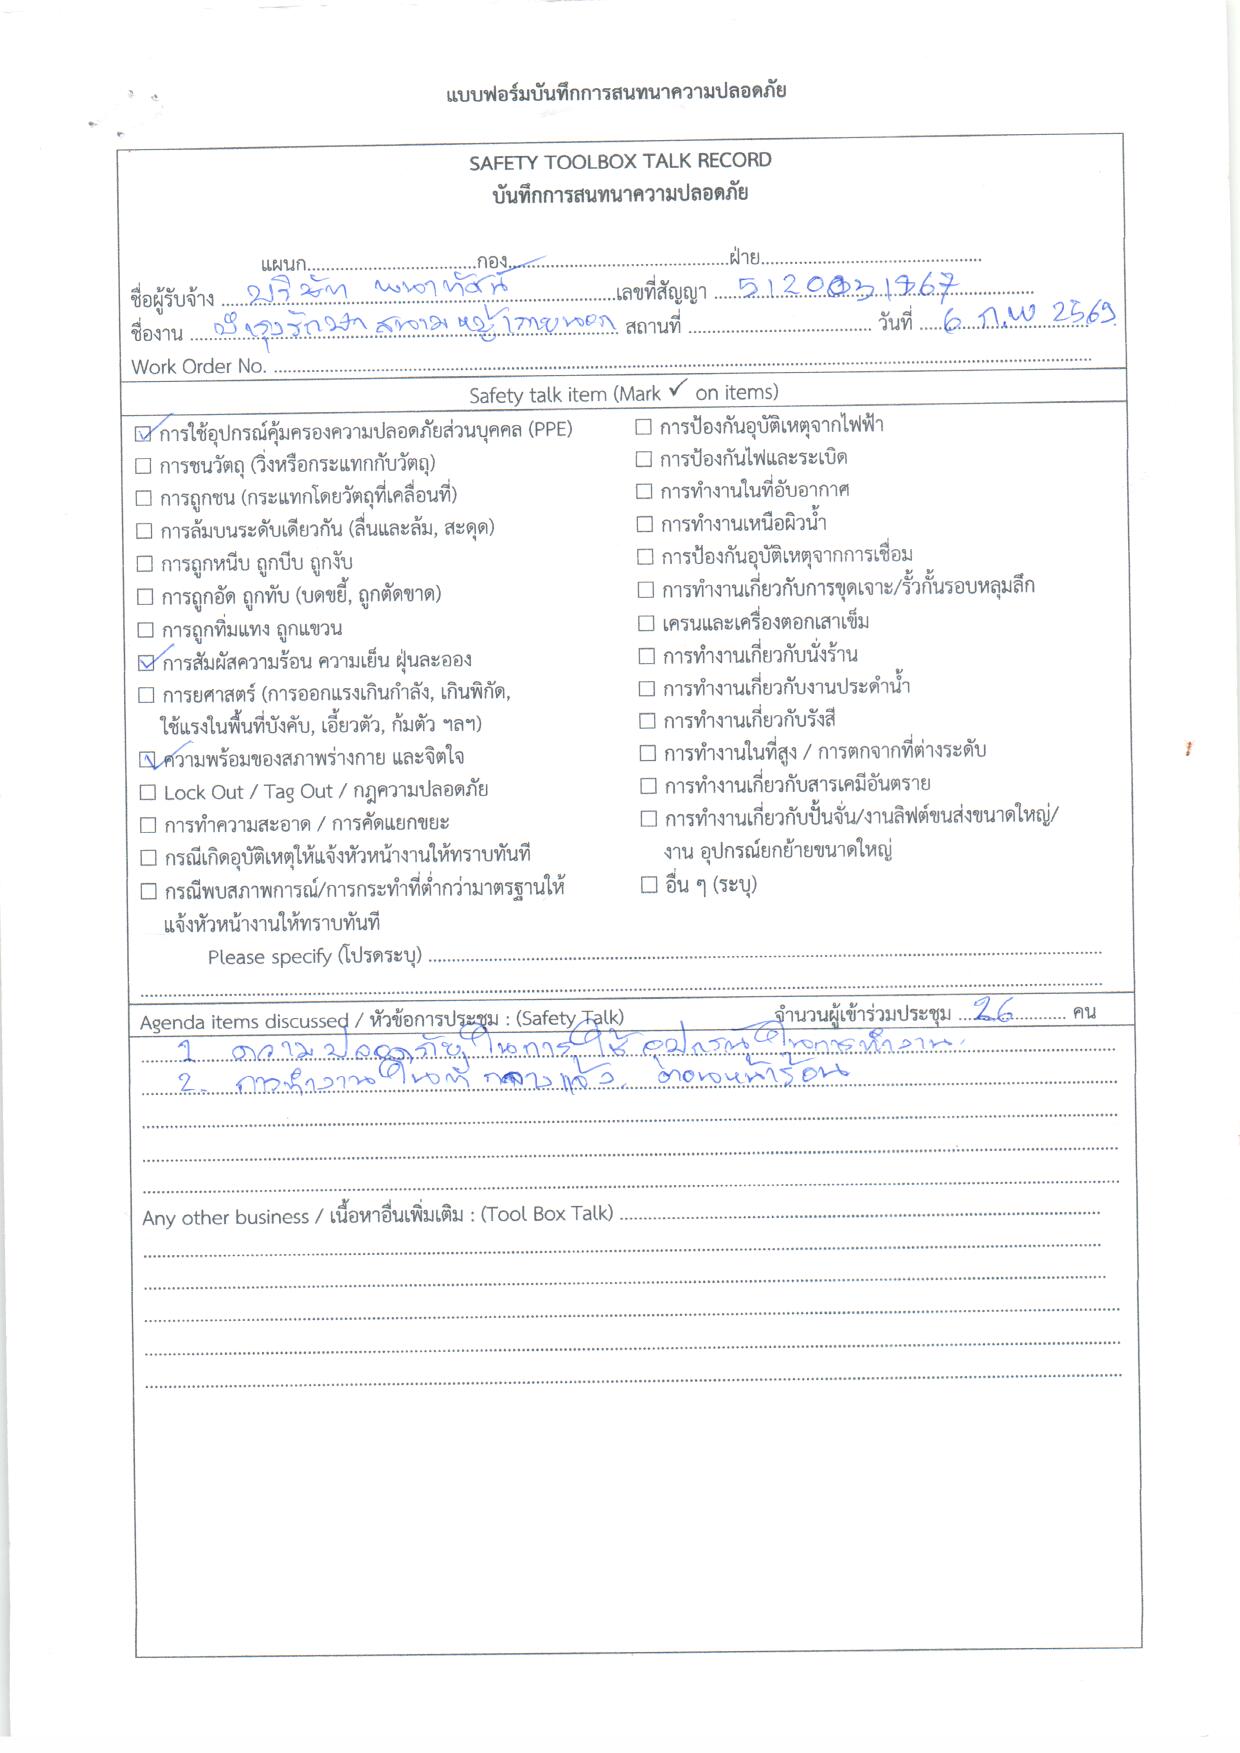 แบบฟอร์มบันทึกการสนทนาความปลอดภัย
SAFETY TOOLBOX TALK RECORD
บันทึกการสนทนาความปลอดภัย
แผนก..............................กอง..............................ฝ่าย..............................
ชื่อผู้รับจ้าง บริษัท พนาทัศน์ เลขที่สัญญา 5120031767
ชื่องาน บำรุงรักษา สนามหญ้าภายนอก สถานที่ .............................. วันที่ 6 ก.พ 2569
Work Order No. ..............................
Safety talk item (Mark ✓ on items)
☑ การใช้อุปกรณ์คุ้มครองความปลอดภัยส่วนบุคคล (PPE)
☐ การชนวัตถุ (วิ่งหรือกระแทกกับวัตถุ)
☐ การถูกชน (กระแทกโดยวัตถุที่เคลื่อนที่)
☐ การล้มบนระดับเดียวกัน (ลื่นและล้ม, สะดุด)
☐ การถูกหนีบ ถูกบีบ ถูกงับ
☐ การถูกอัด ถูกทับ (บดขยี้, ถูกตัดขาด)
☐ การถูกทิ่มแทง ถูกแขวน
☑ การสัมผัสความร้อน ความเย็น ฝุ่นละออง
☐ การยศาสตร์ (การออกแรงเกินกำลัง, เกินพิกัด,
ใช้แรงในพื้นที่บังคับ, เอี้ยวตัว, ก้มตัว ฯลฯ)
☑ ความพร้อมของสภาพร่างกาย และจิตใจ
☐ Lock Out / Tag Out / กฎความปลอดภัย
☐ การทำความสะอาด / การคัดแยกขยะ
☐ กรณีเกิดอุบัติเหตุให้แจ้งหัวหน้างานให้ทราบทันที
☐ กรณีพบสภาพการณ์/การกระทำที่ต่ำกว่ามาตรฐานให้
แจ้งหัวหน้างานให้ทราบทันที
☐ การป้องกันอุบัติเหตุจากไฟฟ้า
☐ การป้องกันไฟและระเบิด
☐ การทำงานในที่อับอากาศ
☐ การทำงานเหนือผิวน้ำ
☐ การป้องกันอุบัติเหตุจากการเชื่อม
☐ การทำงานเกี่ยวกับการขุดเจาะ/รั้วกั้นรอบหลุมลึก
☐ เครนและเครื่องตอกเสาเข็ม
☐ การทำงานเกี่ยวกับนั่งร้าน
☐ การทำงานเกี่ยวกับงานประดำน้ำ
☐ การทำงานเกี่ยวกับรังสี
☐ การทำงานในที่สูง / การตกจากที่ต่างระดับ
☐ การทำงานเกี่ยวกับสารเคมีอันตราย
☐ การทำงานเกี่ยวกับปั้นจั่น/งานลิฟต์ขนส่งขนาดใหญ่/
งาน อุปกรณ์ยกย้ายขนาดใหญ่
☐ อื่น ๆ (ระบุ)
Please specify (โปรดระบุ) ..............................
Agenda items discussed / หัวข้อการประชุม : (Safety Talk) จำนวนผู้เข้าร่วมประชุม 26 คน
1 ความปลอดภัยในการใช้อุปกรณ์ในการทำงาน.
2. การทำงานในที่ กลางแจ้ง. ตอนหน้าร้อน
Any other business / เนื้อหาอื่นเพิ่มเติม : (Tool Box Talk) ..............................